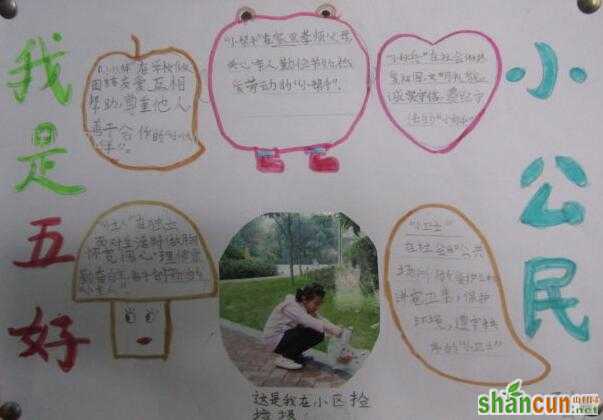 我是五好
小公民
“小伙伴”在学校做
团结友爱互相
帮助,尊重他人
善于合作的“小伙
伴”。
“小帮手”在家里孝顺父母
关心亲人勤俭节约热
爱劳动的“小帮手”.
“小标兵”在社会做热
爱祖国,文明礼貌
诚实守信、遵纪守
法的“小标兵”
“小主人”在独立
面对生活时做胸
怀宽
“小卫士”
在社会公共
场所做
讲究卫生,保护
环境,遵守秩
序的“小卫士”
这是我在小区捡
垃圾!
shancun
.net